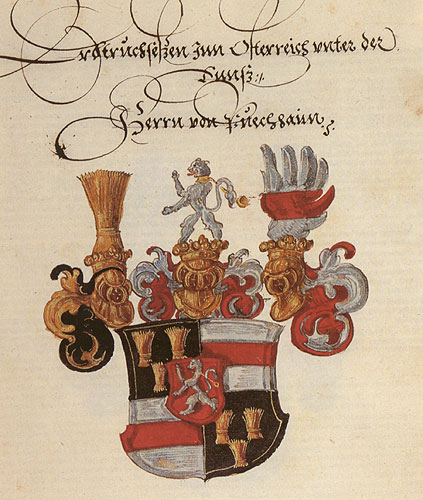 Erbtruchseßen Inn Osterreich vnter der
Ennß:
Herrn von Puechhaim